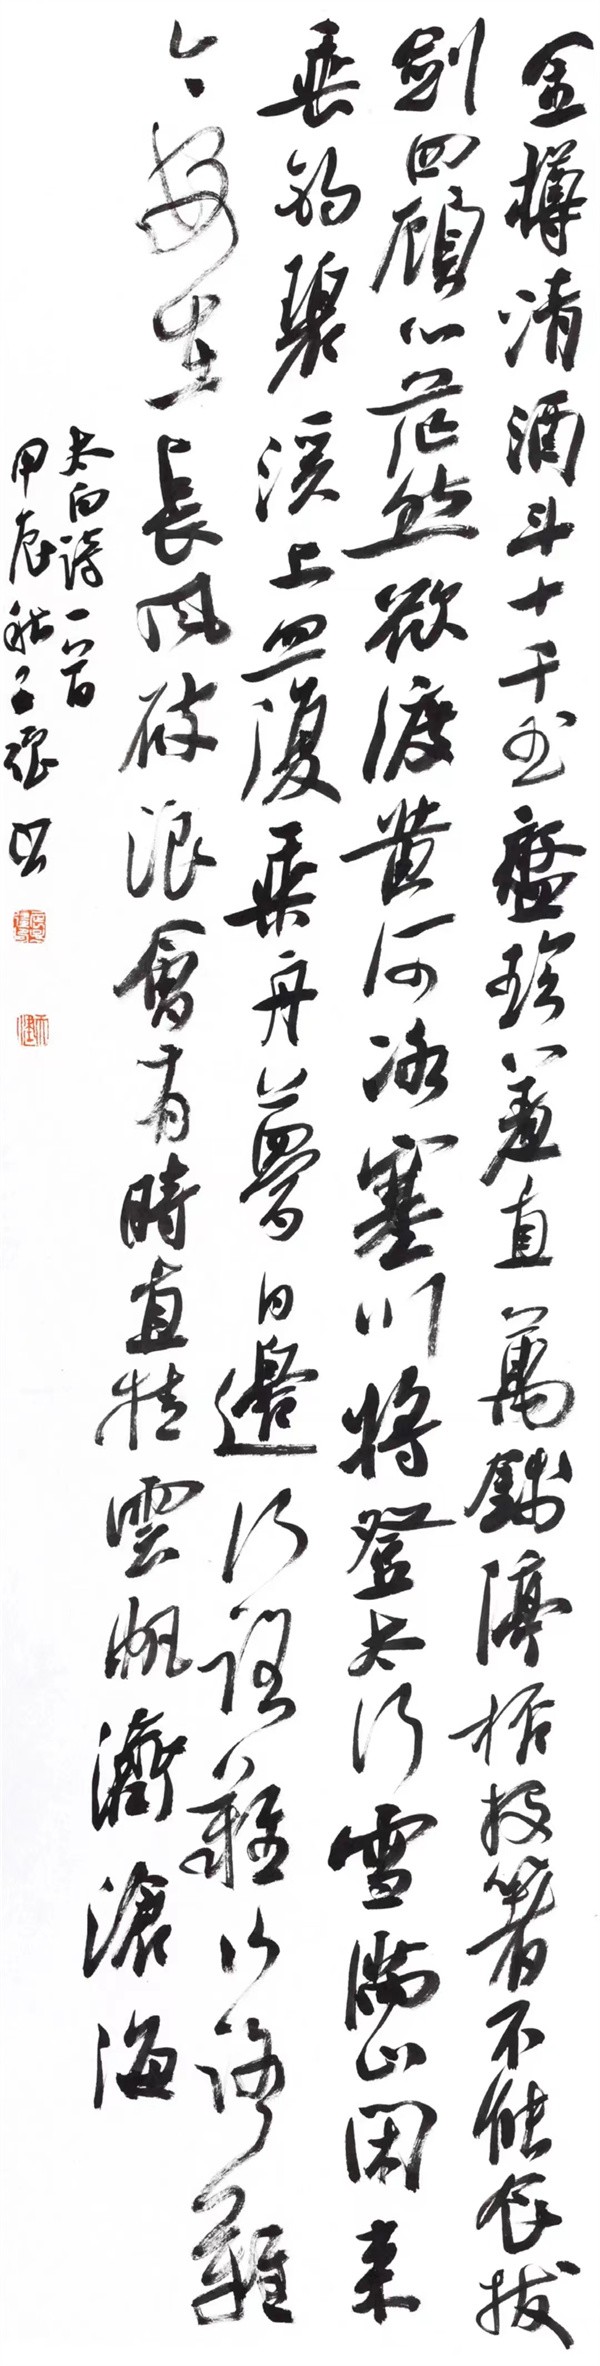 金樽清酒斗十千玉盤珍羞直萬錢停杯投箸不能食拔
劍四顧心茫然欲渡黄河冰塞川將登太行雪滿山閑来
垂釣碧溪上忽復乘舟夢日邊行路難行路難
今安在長風破浪會有時直挂雲帆濟滄海
太白詩一首
甲辰秋書